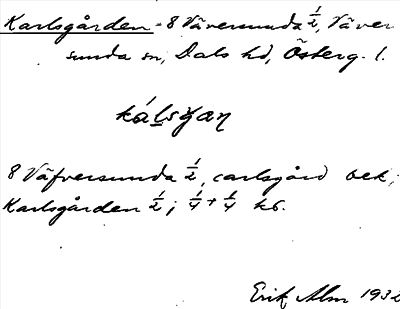 Karlsgården = 8 Väversunda 1/2, Väver
sunda sn, Dals hd, Österg. l.
kálsgan
8 Väfversunda 1/2, carlsgård oek;
Karlsgården 1/2; 1/4 + 1/4 k6.
Erik Alm 1932